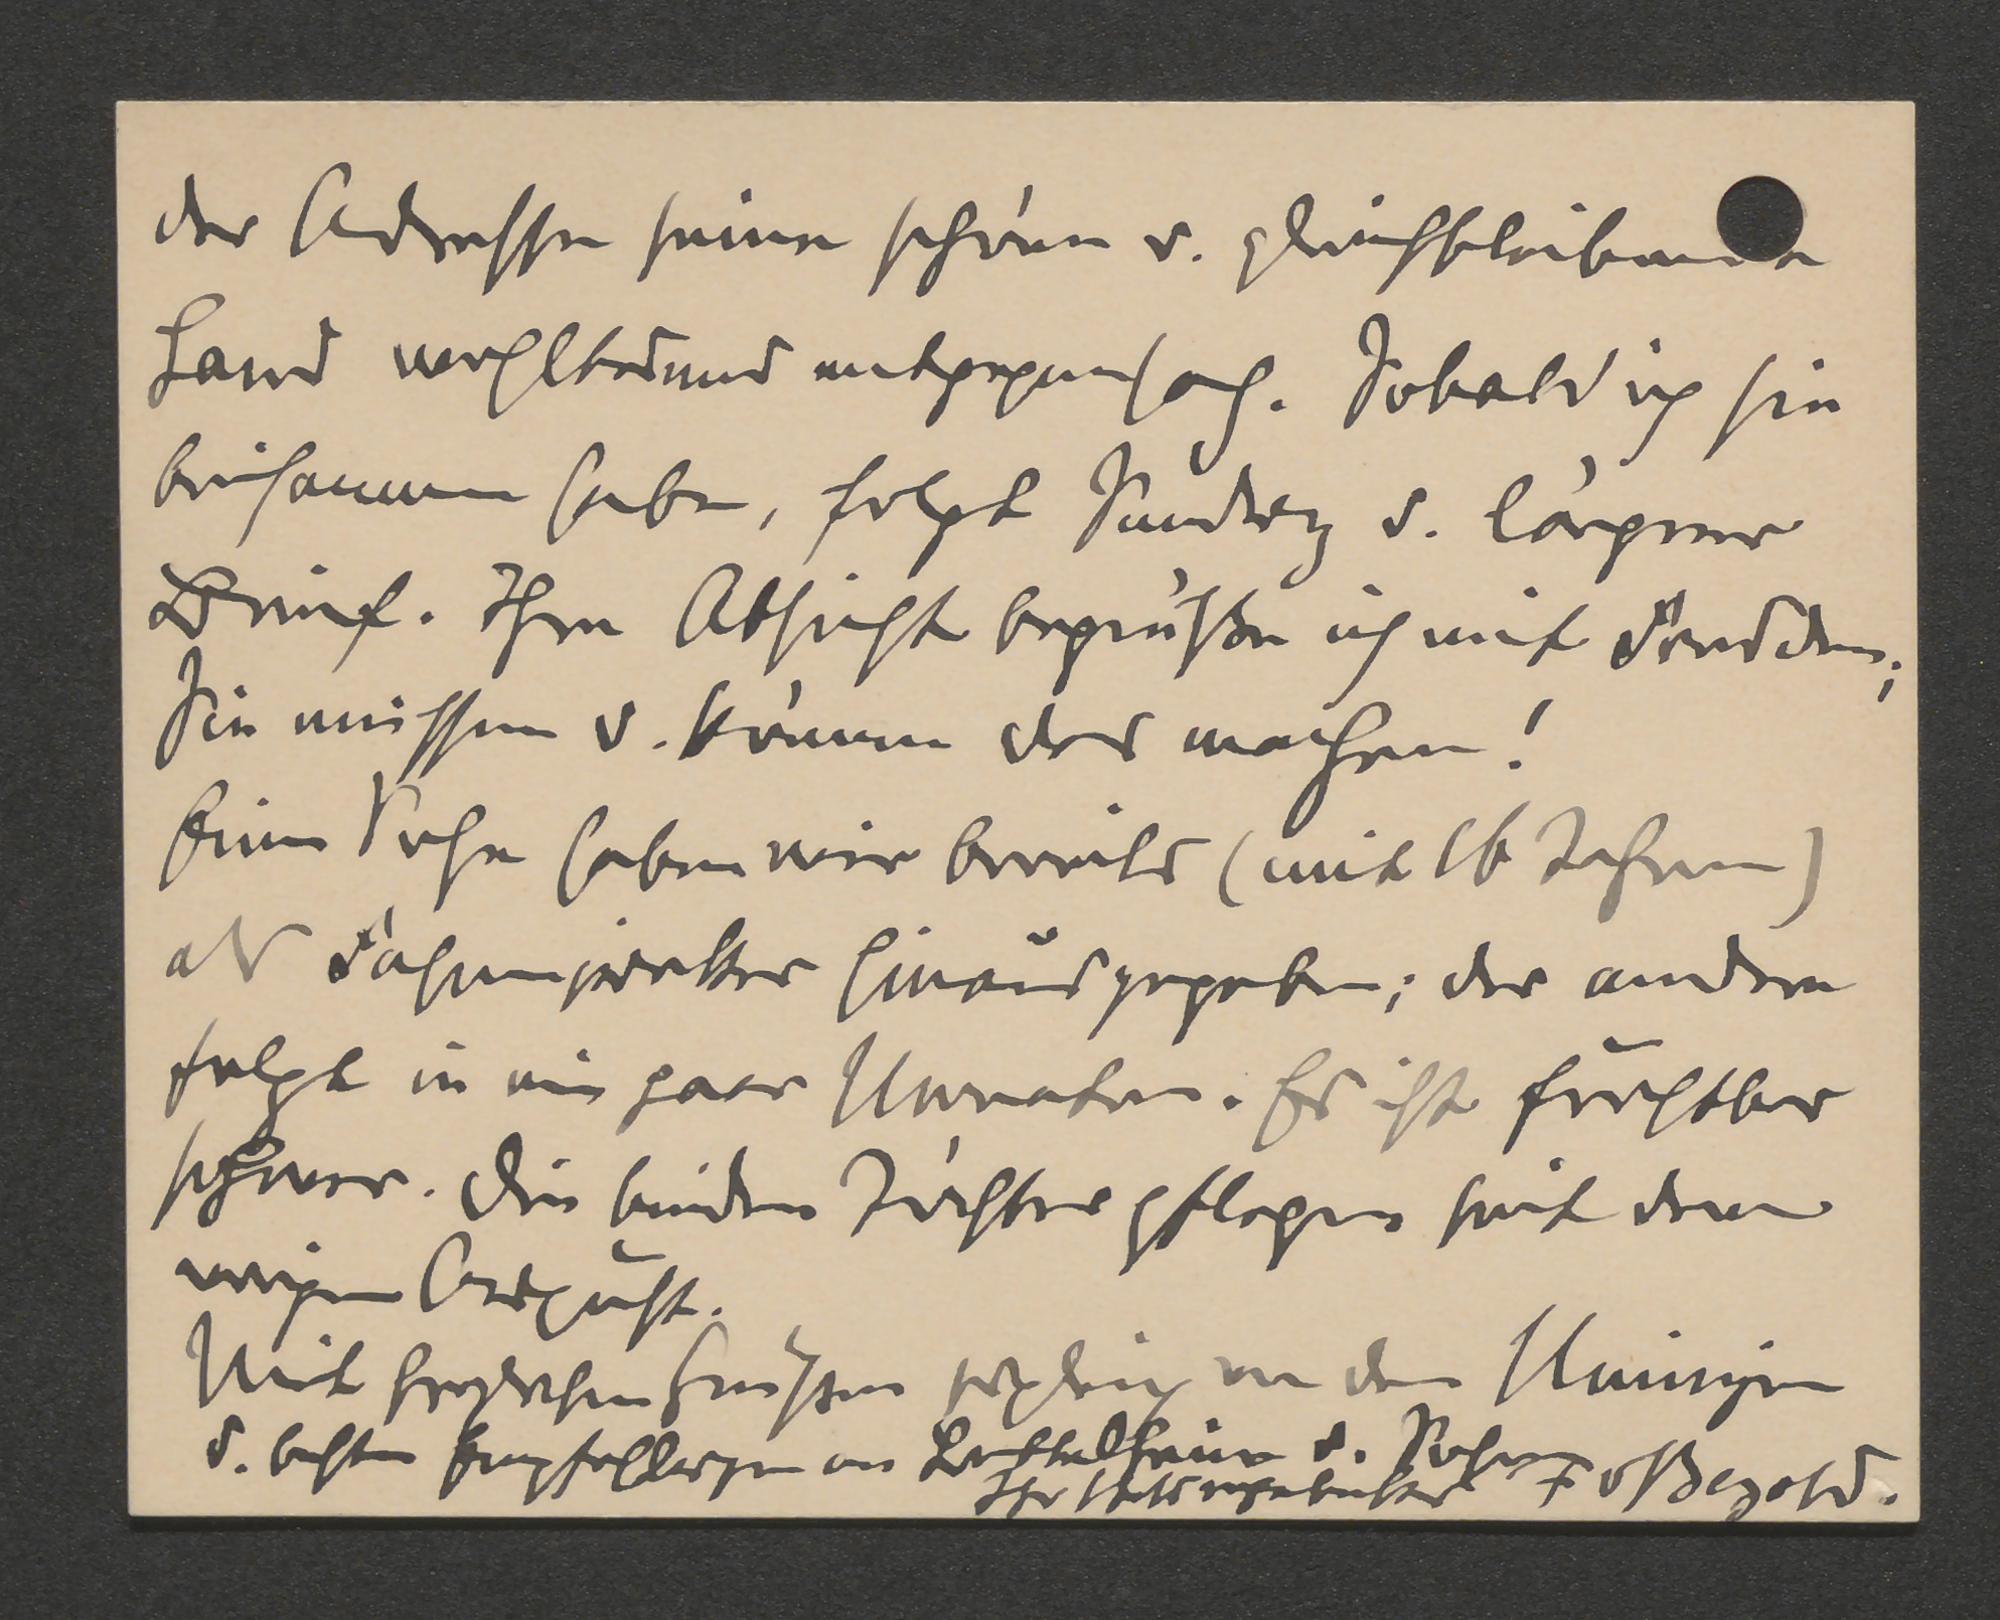 der Adresse seine schöne u. gleichbleibende
Hand wohltuend entgegensah. Sobald ich sie
beisammen habe, folgt Sendung u. längerer
Brief. Ihre Absicht begrüße ich mit Freuden;
Sie müssen u. können das machen!
Einen Sohn haben wir bereits (mit 16 Jahren)
als Fahnenjunker hinausgegeben; der andere
folgt in ein paar Monaten. Es ist furchtbar
schwer. Die beiden Töchter pflegen seit dem
vorigen August.
Mit herzlichen Grüßen zugleich von den Meinigen
u. besten Empfehlungen an u. Sohn
Ihr stets ergebenster F v Bezold.